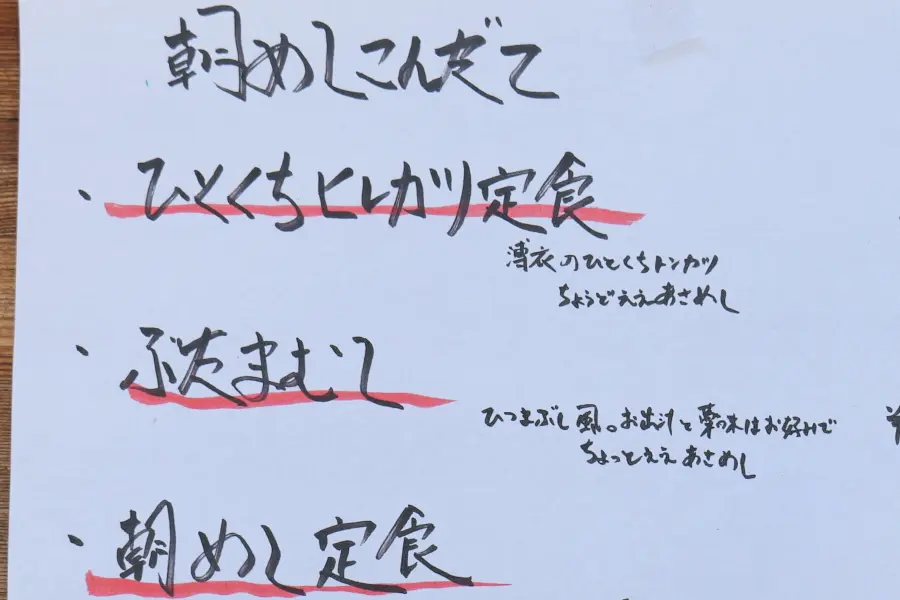 朝めしこんだて
・ひとくちヒレカツ定食
薄衣のひとくちトンカツ
ちょうどええあさめし
・ぶたまむし
ひつまぶし風。お出汁と薬味はお好みで
ちょっとええあさめし
・朝めし定食